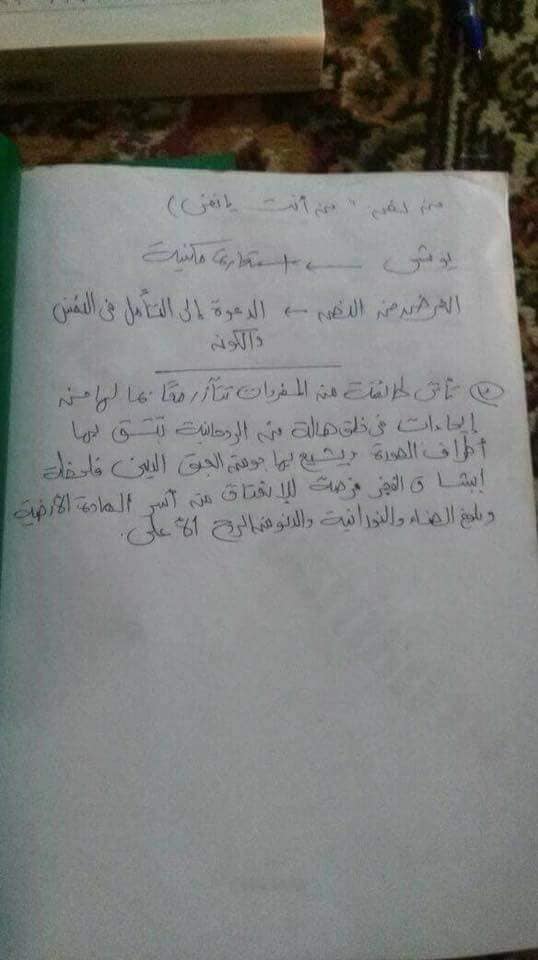 من نص " من أنت يا نفس )
يوشى ← استعارة مكنية
الغرض من النص ← الدعوة إلى التأمل في النفس
والكون
تأتى طائفة من المفردات تتآزر معًا بما لها من
إيحاءات في خلق هالة من الروحانية تتسق بها
أطراف الصورة ويشيع بها جو من الدين فلحظة
انبثاق الفجر فرصة للإنعتاق من أسر المادة الأرضية
وبلوغ الصفاء والنورانية والدنو من الروح الأعلى.